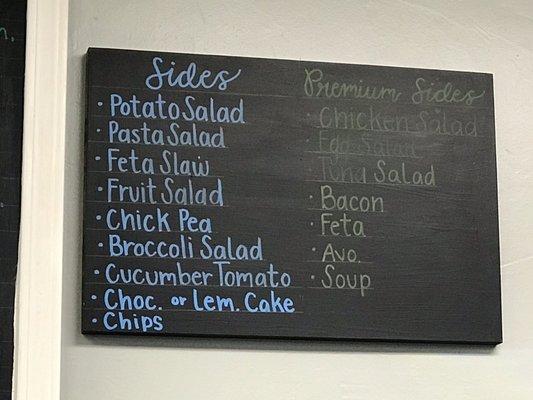 Sides
· Potato Salad
· Pasta Salad
· Feta Slaw
· Fruit Salad
· Chick Pea
· Broccoli Salad
· Cucumber Tomato
· Choc. or Lem. Cake
· Chips
Premium Sides
· Chicken Salad
· Egg Salad
· Tuna Salad
· Bacon
· Feta
· Avo.
· Soup